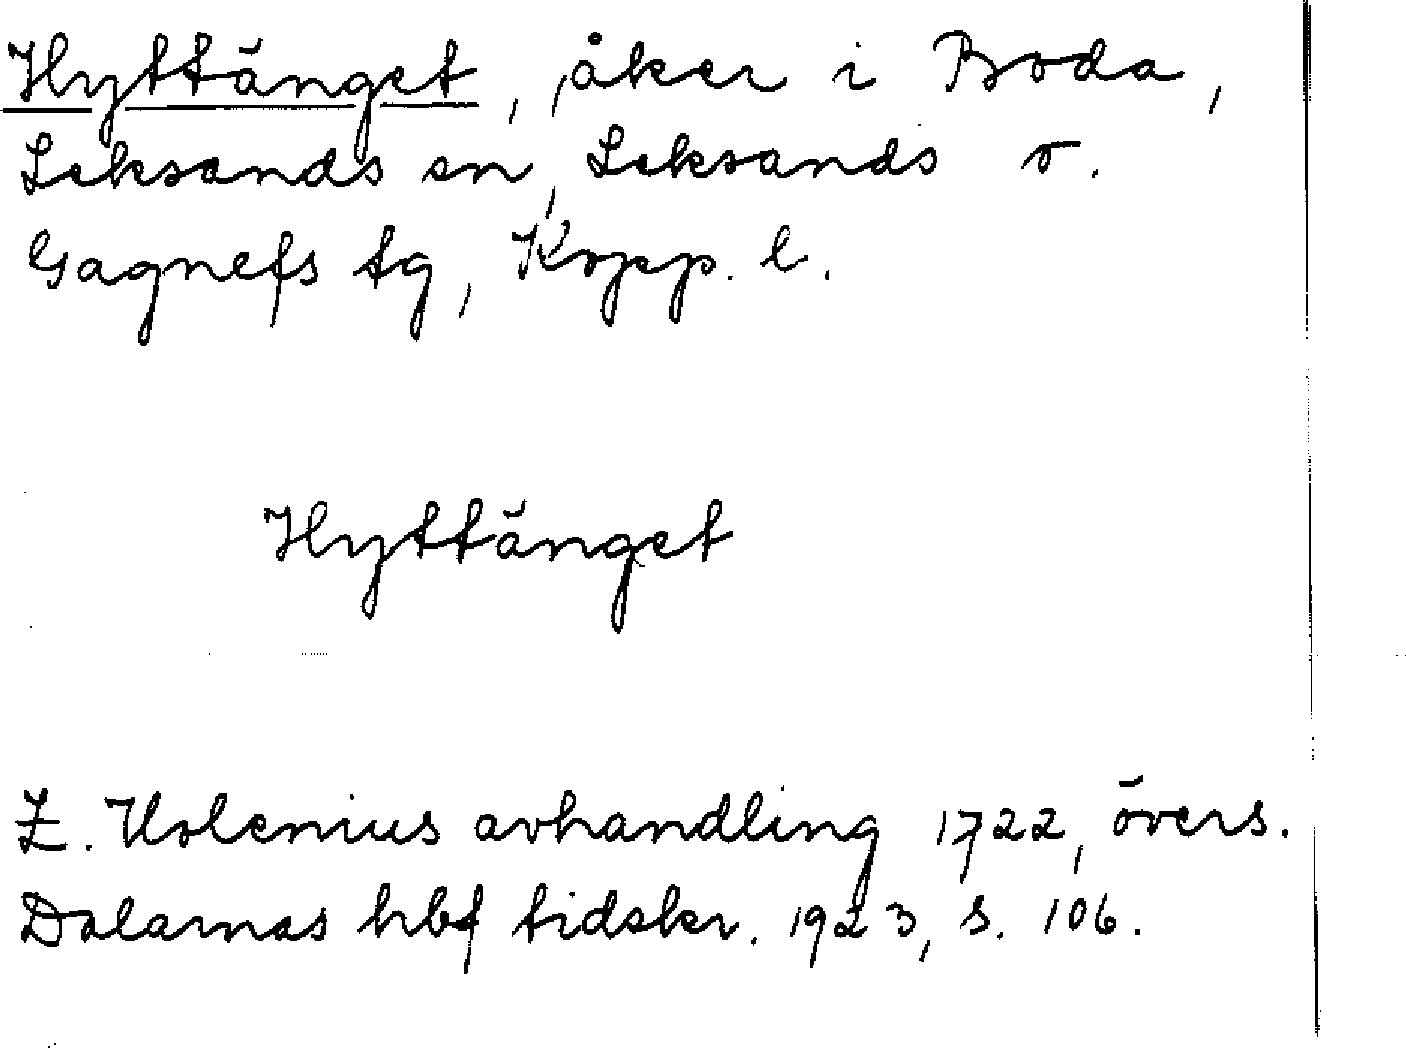 Hyttänget, åker i Boda,
Leksands sn, Leksands o.
Gagnefs tg, Kopp. l.
Hyttänget
Z. Holenius avhandling 1722, övers.
Dalarnas hbf tidskr. 1923, s. 106.